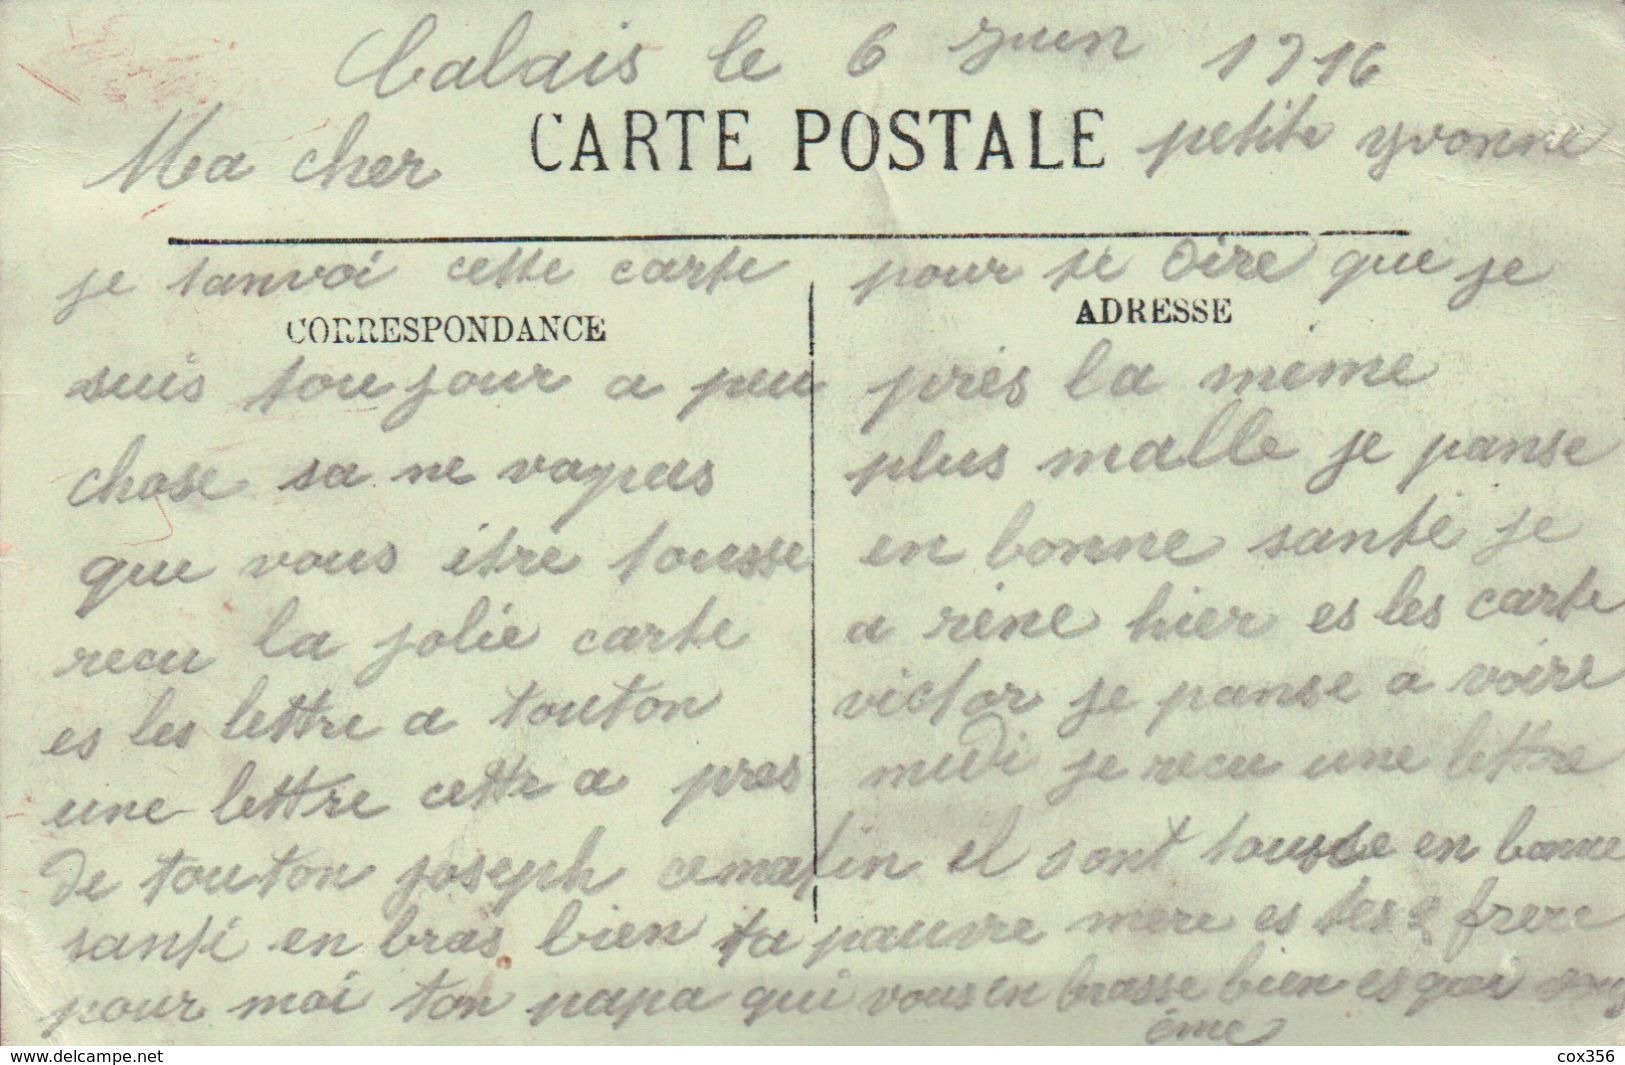 Calais le 6 juin 1916
Ma cher CARTE POSTALE petite yvonne
je tanvoi cette carte pour te dire que je
CORRESPONDANCE ADRESSE
suis toujour a peu près la même
chose sa ne vapas plus malle je panse
que vous être tousse en bonne santé je
recu la jolie carte a rene hier es les carte
es les lettre a touton victor je panse a voire
une lettre cette a pres midi je recu une lettre
de touton joseph cematin il sont tousse en bonne
santé en bras bien ta pauvre mere es tes frere
pour moi ton papa qui vous en brasse bien es qui vous
éme
delcampe.net
cox356